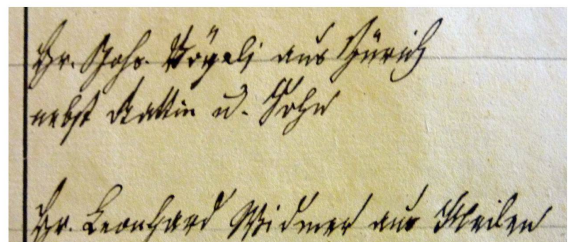 Hr. Johs. Vögeli aus Zürich
nebst Gattin u. Sohn
Hr. Leonhard Widmer aus Meilen